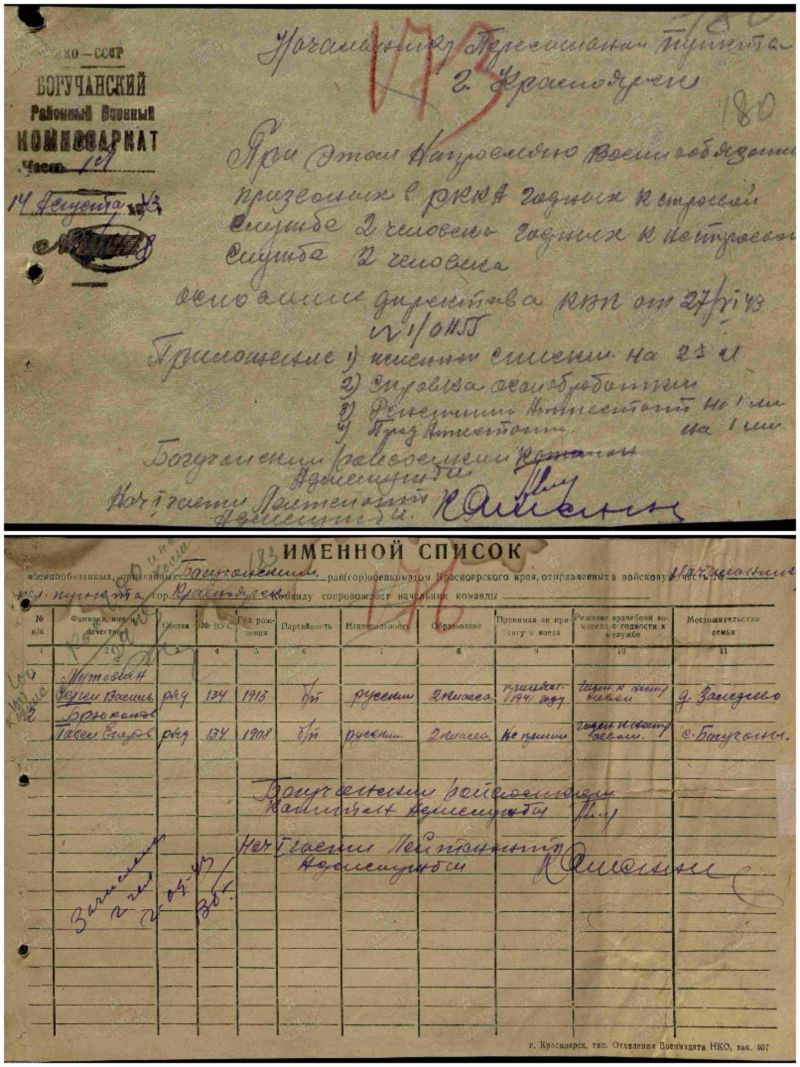 НКО — СССР
БОГУЧАНСКИЙ
Районный Военный
КОМИССАРИАТ
Часть 1
14 Августа 1943
№ 8
173
180
Начальнику Пересыльного пункта
г. Красноярск
При этом Направляю Военнообязанных
призванных в РККА годных к строевой
службе 2 человека годных к нестроевой
службе 2 человека
директива от 27/VI 43
Приложение 1) именной список на 2х л
2) справка
3) Аттестат на 1 лист
4) Прод Аттестат на 1 лист
Богучанский райвоенком капитан
Адмслужбы
Нач I части Лейтенант
Адмслужбы
ИМЕННОЙ СПИСОК
183
176
военнообязанных, призванных Богучанским рай(гор)военкоматом Красноярского края, отправленных в войсковую часть № Начальнику
пункта гор. Красноярск команду сопровождает начальник команды
№ п/п
Фамилия, имя отчество
Состав
№ ВУС
Год рождения
Партийность
Национальность
Образование
Принимал ли присягу и когда
Решение врачебной комиссии о годности к службе
Местожительство семьи
1 2 3 4 5 6 7 8 9 10 11
Сергей Василь ряд 134 1913 б/п русский 2 класса 1941 году годен к нестроевой д. Заледеево
2 Брюханов
Павел Егоров ряд 134 1908 б/п русский 2 класса не принял годен к нестроевой с. Богучаны
Богучанский райвоенком
капитан Адмслужбы
Нач I части Лейтенант
Адмслужбы
Зачислено
2 чел
2-09-43
г. Красноярск, тип. Отделения Воениздата НКО, зак. 407